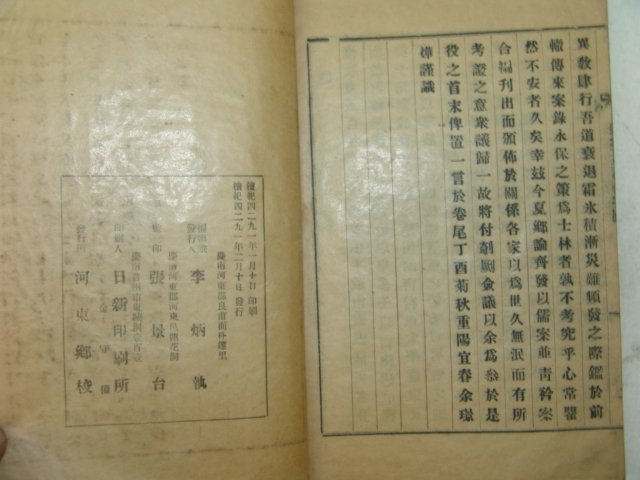 異敎肆行吾道衰退霜氷積漸災難頻發之際鑑於前
轍傳來案錄永保之策爲士林者孰不考究乎心常
然不安者久矣幸玆今夏鄕論齊發以儒案並靑衿案
合編刊出而頒佈於關係各家以爲世久無泯而有所
考證之意衆議歸一故將付剞劂僉議以余爲參於是
役之首末俾置一言於卷尾丁酉菊秋重陽宜春余璟
燁謹識
檀紀四二九一年一月十日印刷
檀紀四二九一年二月十日發行
慶南河東郡良甫面朴達里
編輯兼發行人 李炳執
慶南河東郡河東邑
張景台
印刷人 日新印刷所
發行所 河東鄕校